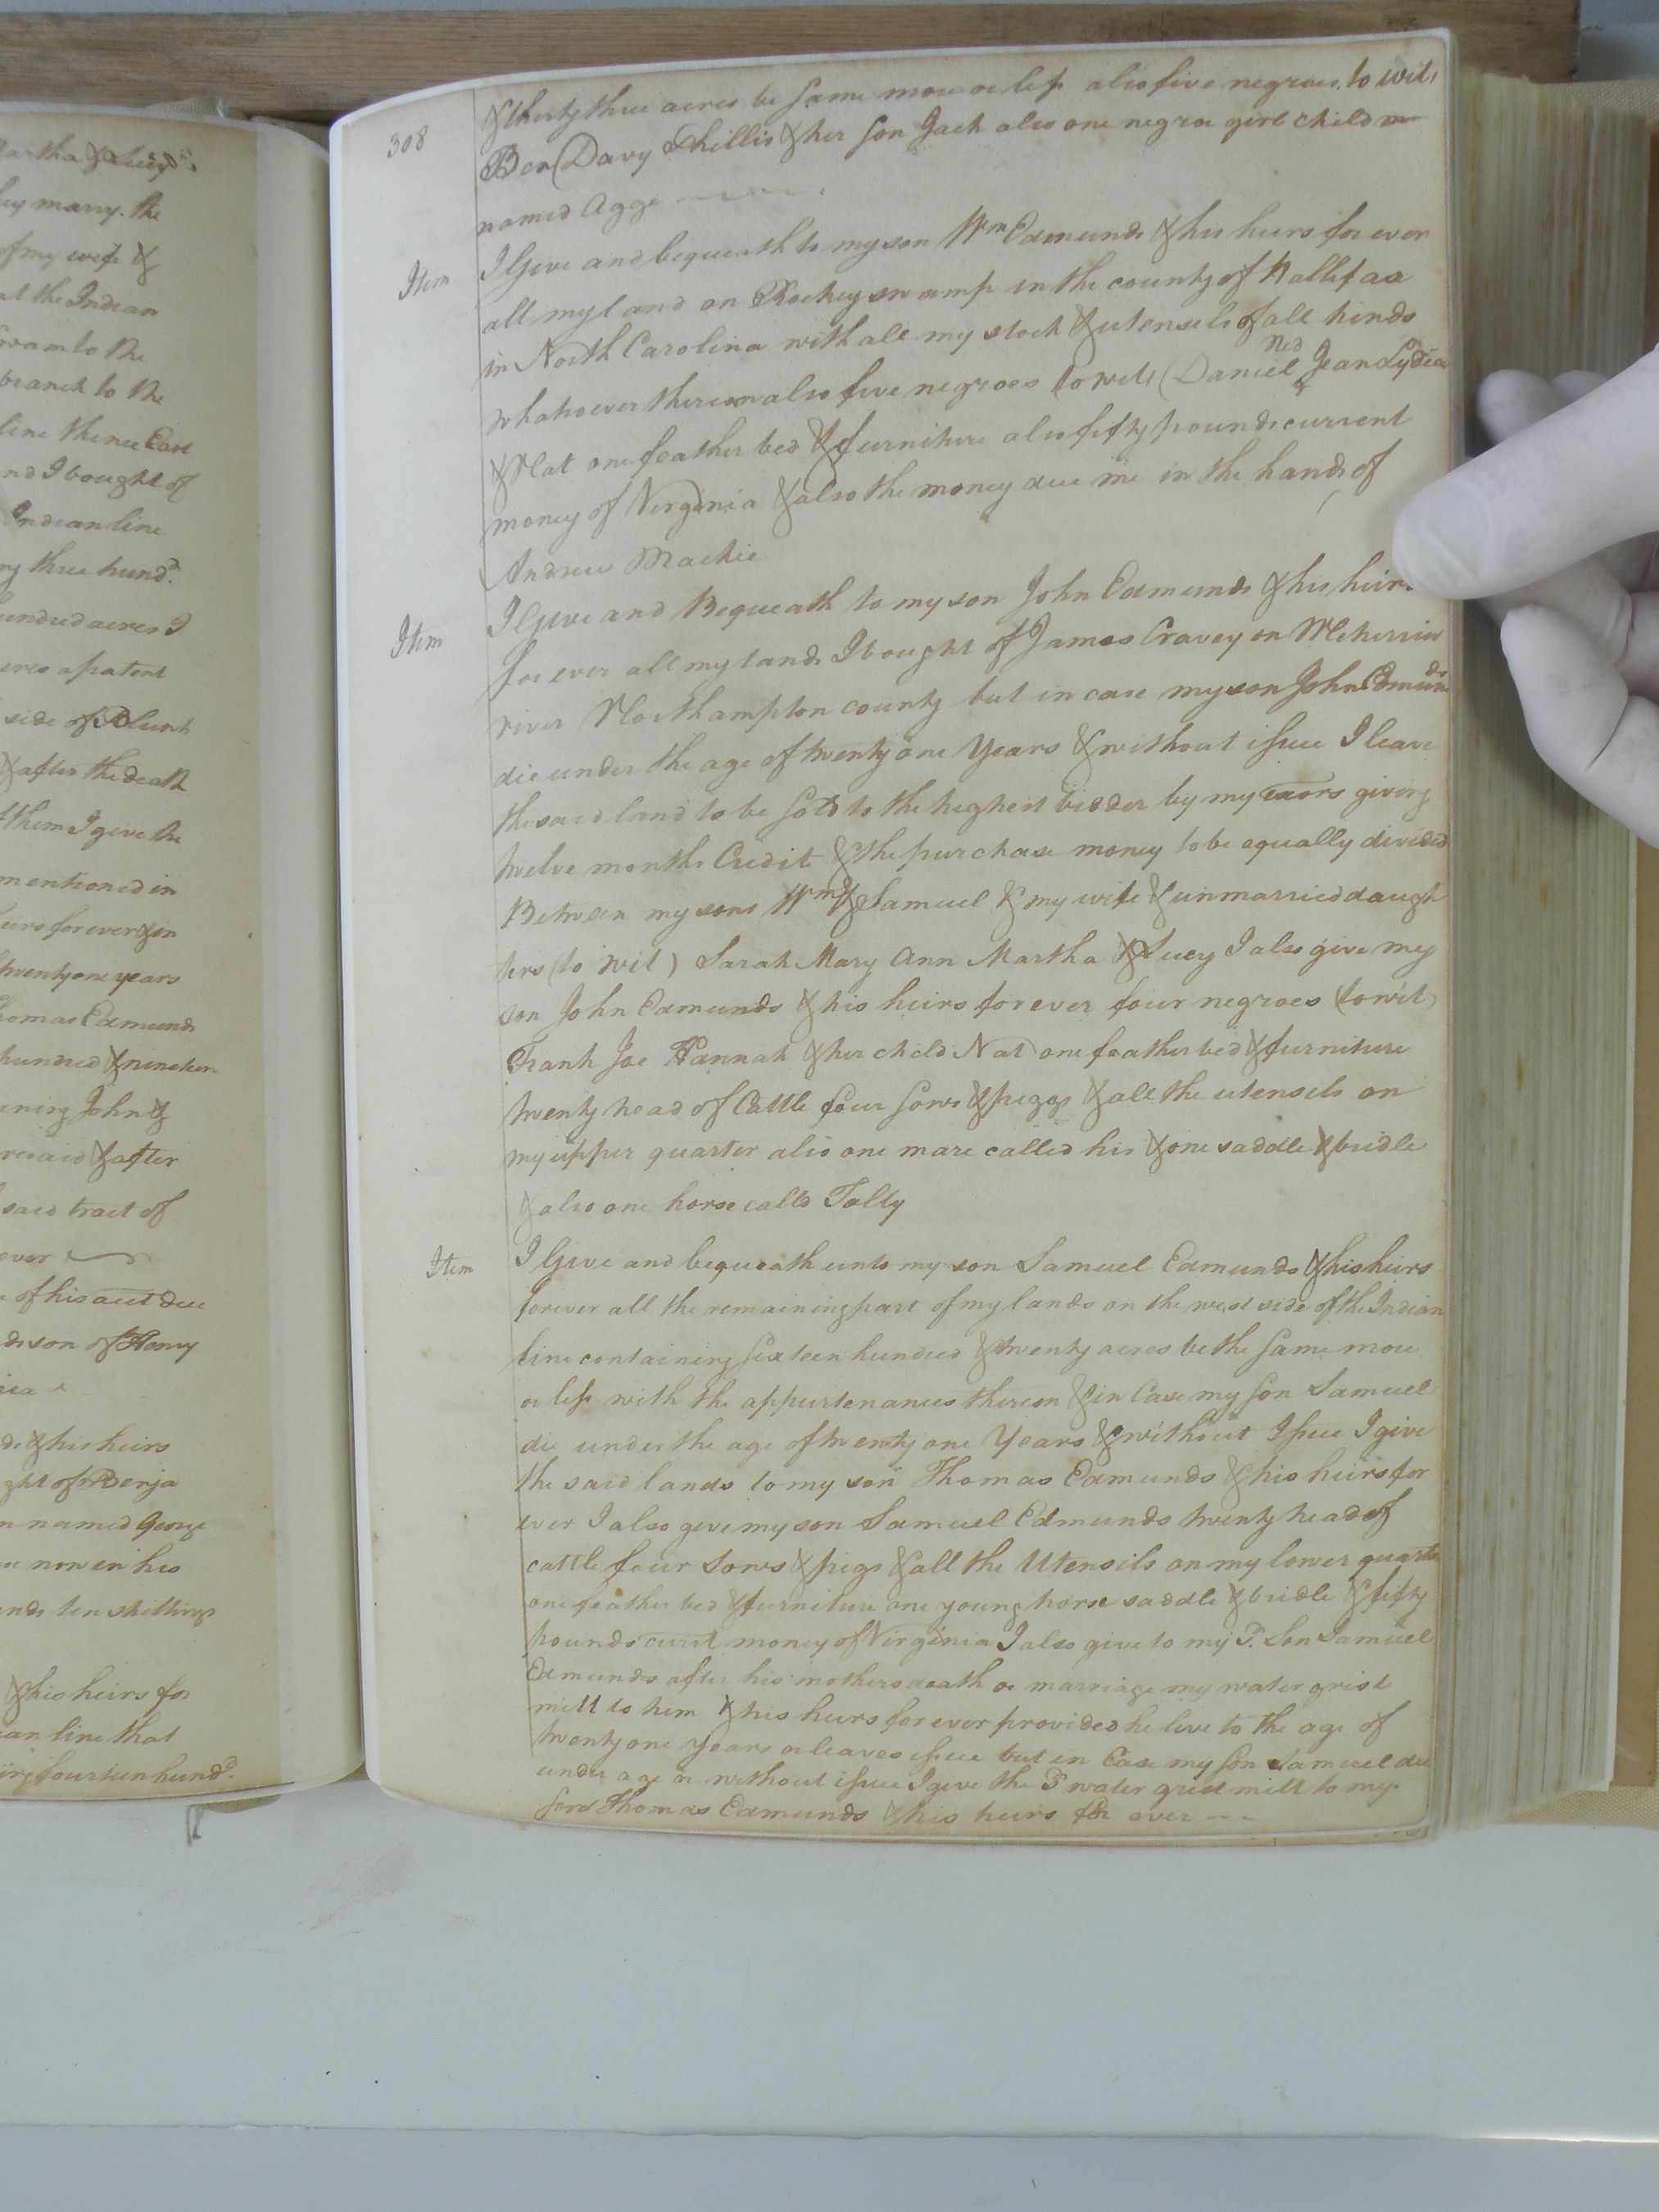 artha & Lucy
hey marry. the
of my wife &
at the Indian
swam to the
branch to the
line thence East
nd I bought of
Indian line
ng three hundd.
undred acres I
acres a patent
side of Blunt
& after the death
them I give the
mentioned in
heirs for ever & in
twenty one years
Thomas Edmunds
hundred & nineteen
ining John &
resaid & after
said tract of
ever
of his acct due
dison of Henry
ds & his heirs
ght of Benja
n named George
now in his
ends ten shillings
& his heirs for
ian line that
ing fourteen hundd.
308
& thirty three acres be same more or less also five negroes. to wit,
Ben (Davy Phillis & her son Jack also one negroe girl child
named Agge
Item I Give and bequeath to my son Wm Edmunds & his heirs for ever
all my land on Rockey swamp in the county of Hallifax
in North Carolina with all my stock & utensils of all kinds
whatsoever thereon also five negroes (to wit) (Daniel Ned Jean Lydia
& Nat one feather bed & furniture also fifty pounds current
money of Virginia & also the money due me in the hands of
Andrew Mackie
Item I Give and Bequeath to my son John Edmunds & his heirs
for ever all my lands I bought of James Cravey on Meherrin
river Northampton county but in case my son John Edmunds
die under the age of twenty one Years & without issue I leave
the said land to be sold to the highest bidder by my exors giving
twelve months Credit & the purchase money to be equally divided
Between my sons Wm & Samuel & my wife & unmarried daugh
ters (to wit) Sarah Mary Ann Martha & Lucy I also give my
son John Edmunds & his heirs for ever four negroes (to wit)
Frank Joe Hannah & her child Nat) one feather bed & furniture
twenty head of Cattle four sows & piggs & all the utensils on
my upper quarter also one mare called his & one saddle & bridle
& also one horse calld Tolly
Item I Give and bequeath unto my son Samuel Edmunds & his heirs
forever all the remaining part of my lands on the west side of the Indian
line containing sixteen hundred & twenty acres be the same more
or less with the appurtenances thereon & in Case my son Samuel
die under the age of twenty one Years & without Issue I give
the said lands to my son Thomas Edmunds & his heirs for
ever I also give my son Samuel Edmunds twenty head of
cattle four sows & pigs & all the Utensils on my lower quarter
one feather bed & furniture one young horse saddle & bridle & fifty
pounds curnt money of Virginia I also give to my sd. Son Samuel
Edmunds after his mothers death or marriage my water grist
mill to him & his heirs for ever provided he live to the age of
twenty one years or leaves issue but in Case my son Samuel die
under age or without issue I give the sd water grist mill to my
son Thomas Edmunds & his heirs for ever